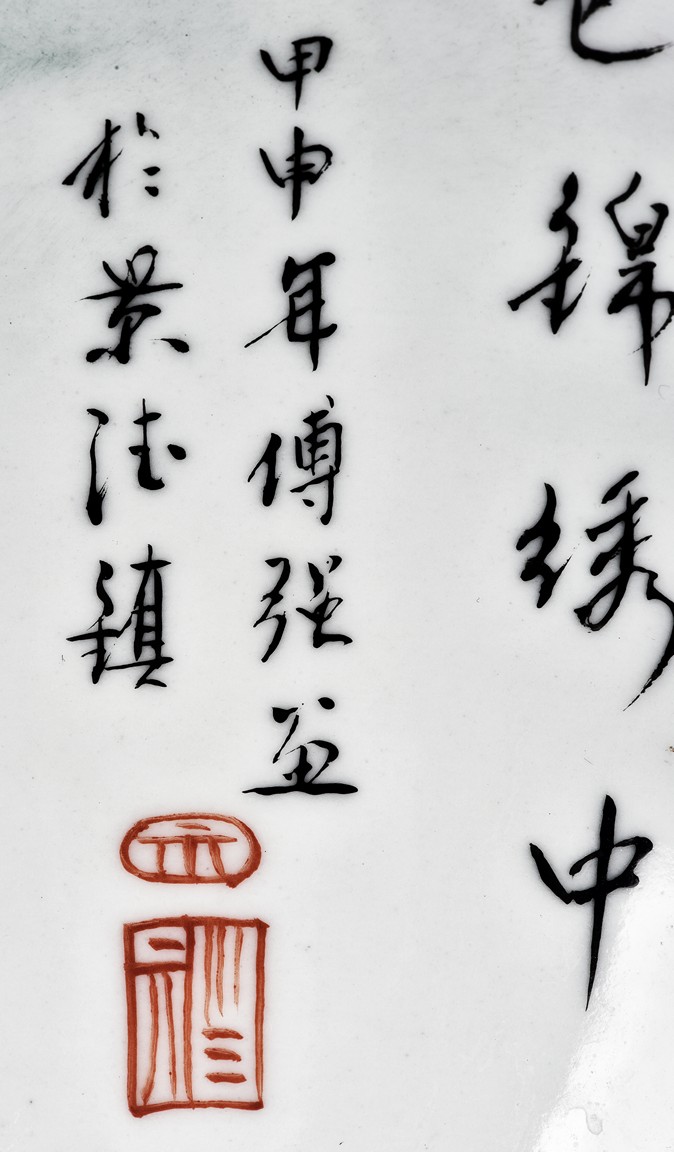 錦绣中
甲申年傅强益
於景德鎮